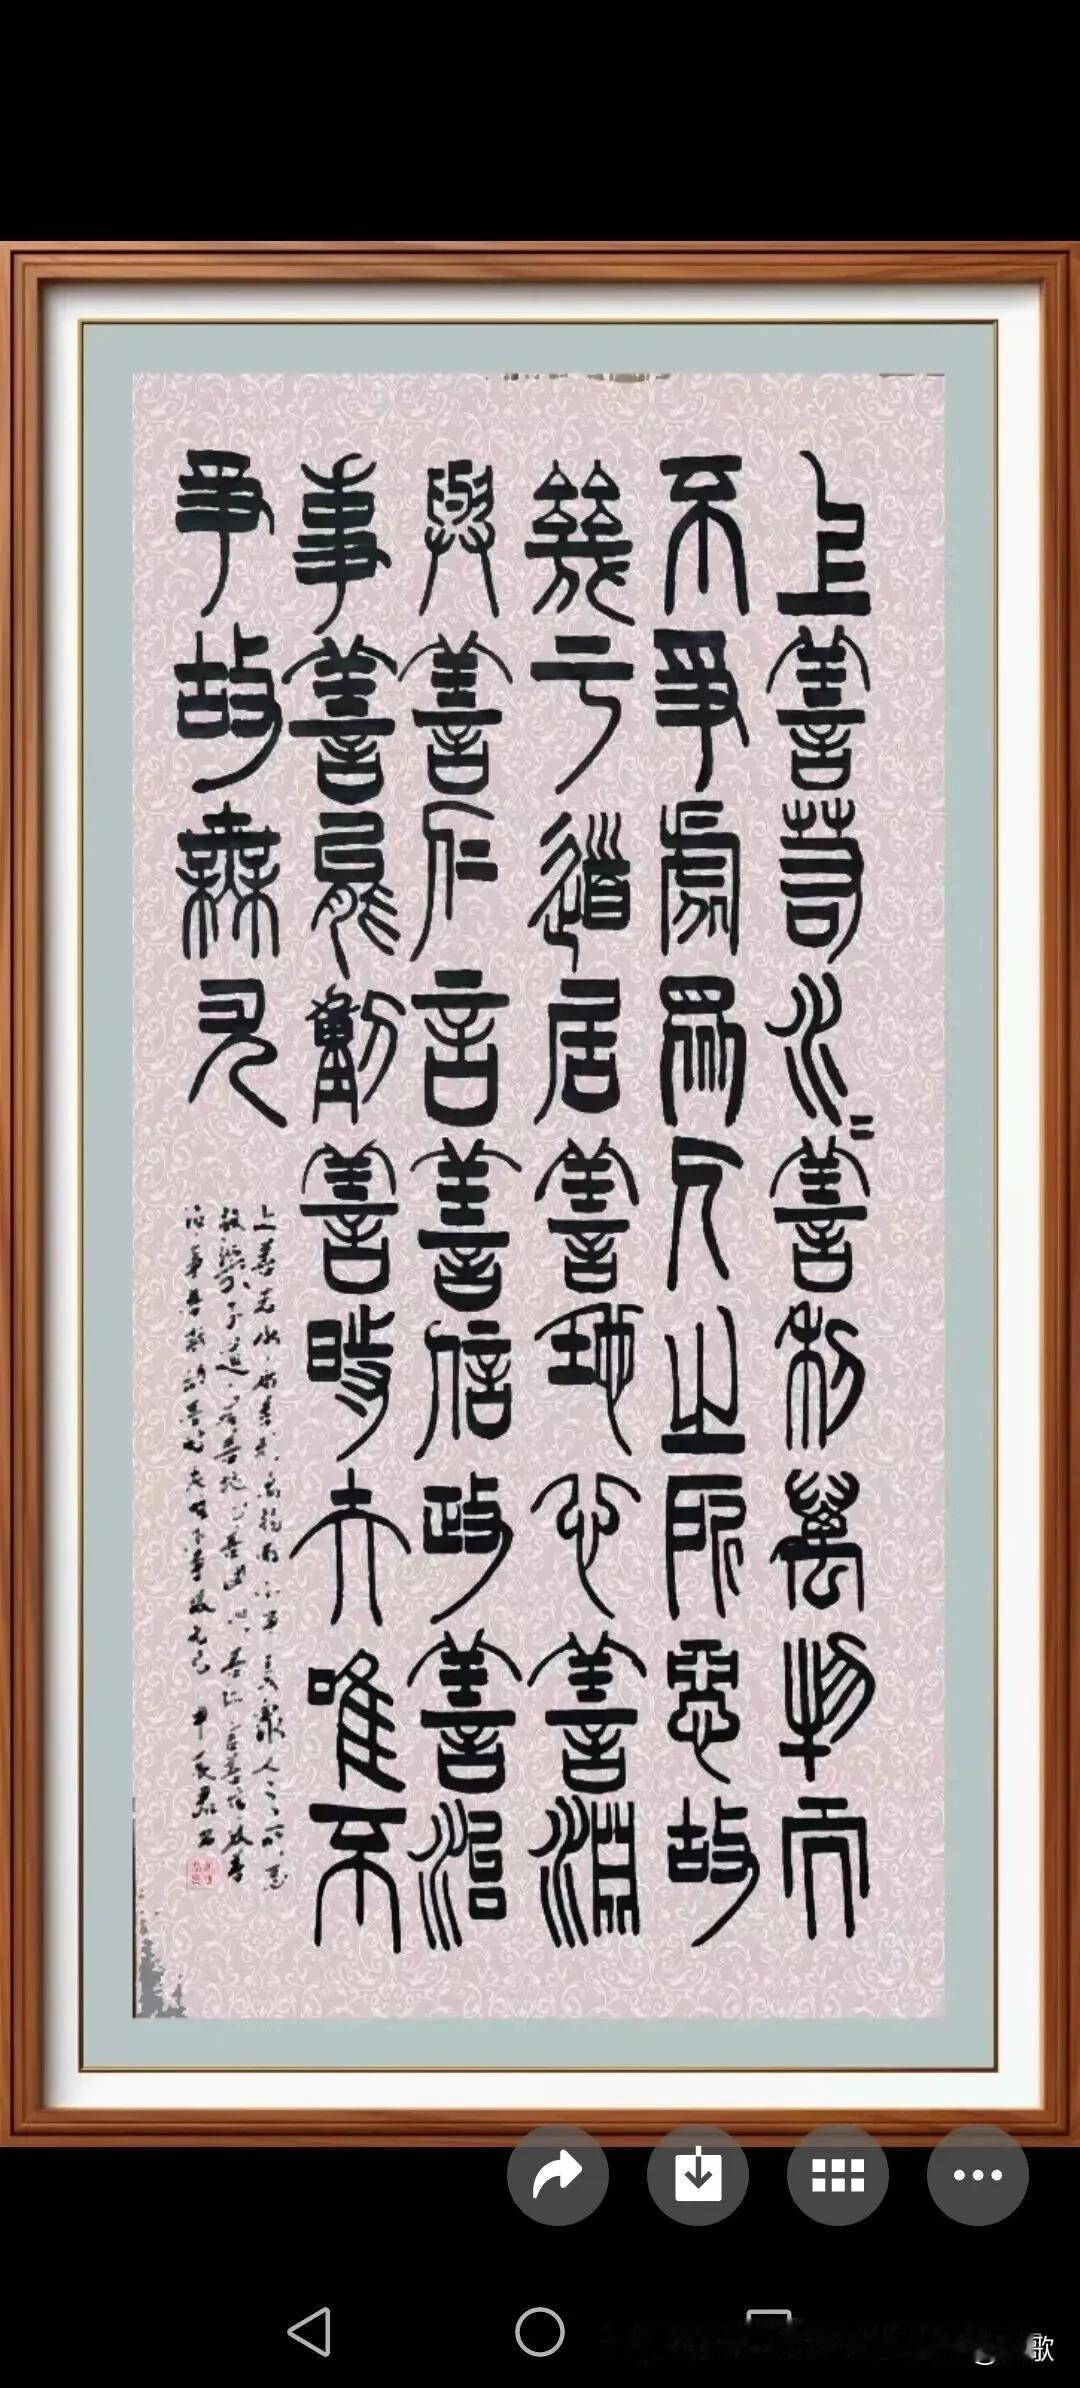 上善若水=善利萬物而
不爭處眾人之所惡故
幾于道居善地心善淵
與善仁言善信政善治
事善能動善時夫唯不
爭故無尤
上善若水水善利萬物而不爭處眾人之所惡
故幾于道居善地心善淵與善仁言善信政善
治事善能動善時夫唯不爭故無尤 甲辰
歌